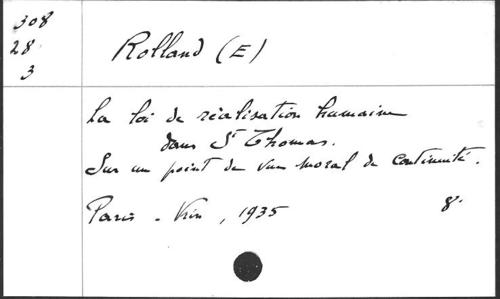 308
28
3
Rolland (E)
La loi de réalisation humaine
dans St Thomas.
Sur un point de vue moral de continuité.
Paris - Vrin, 1935 8°